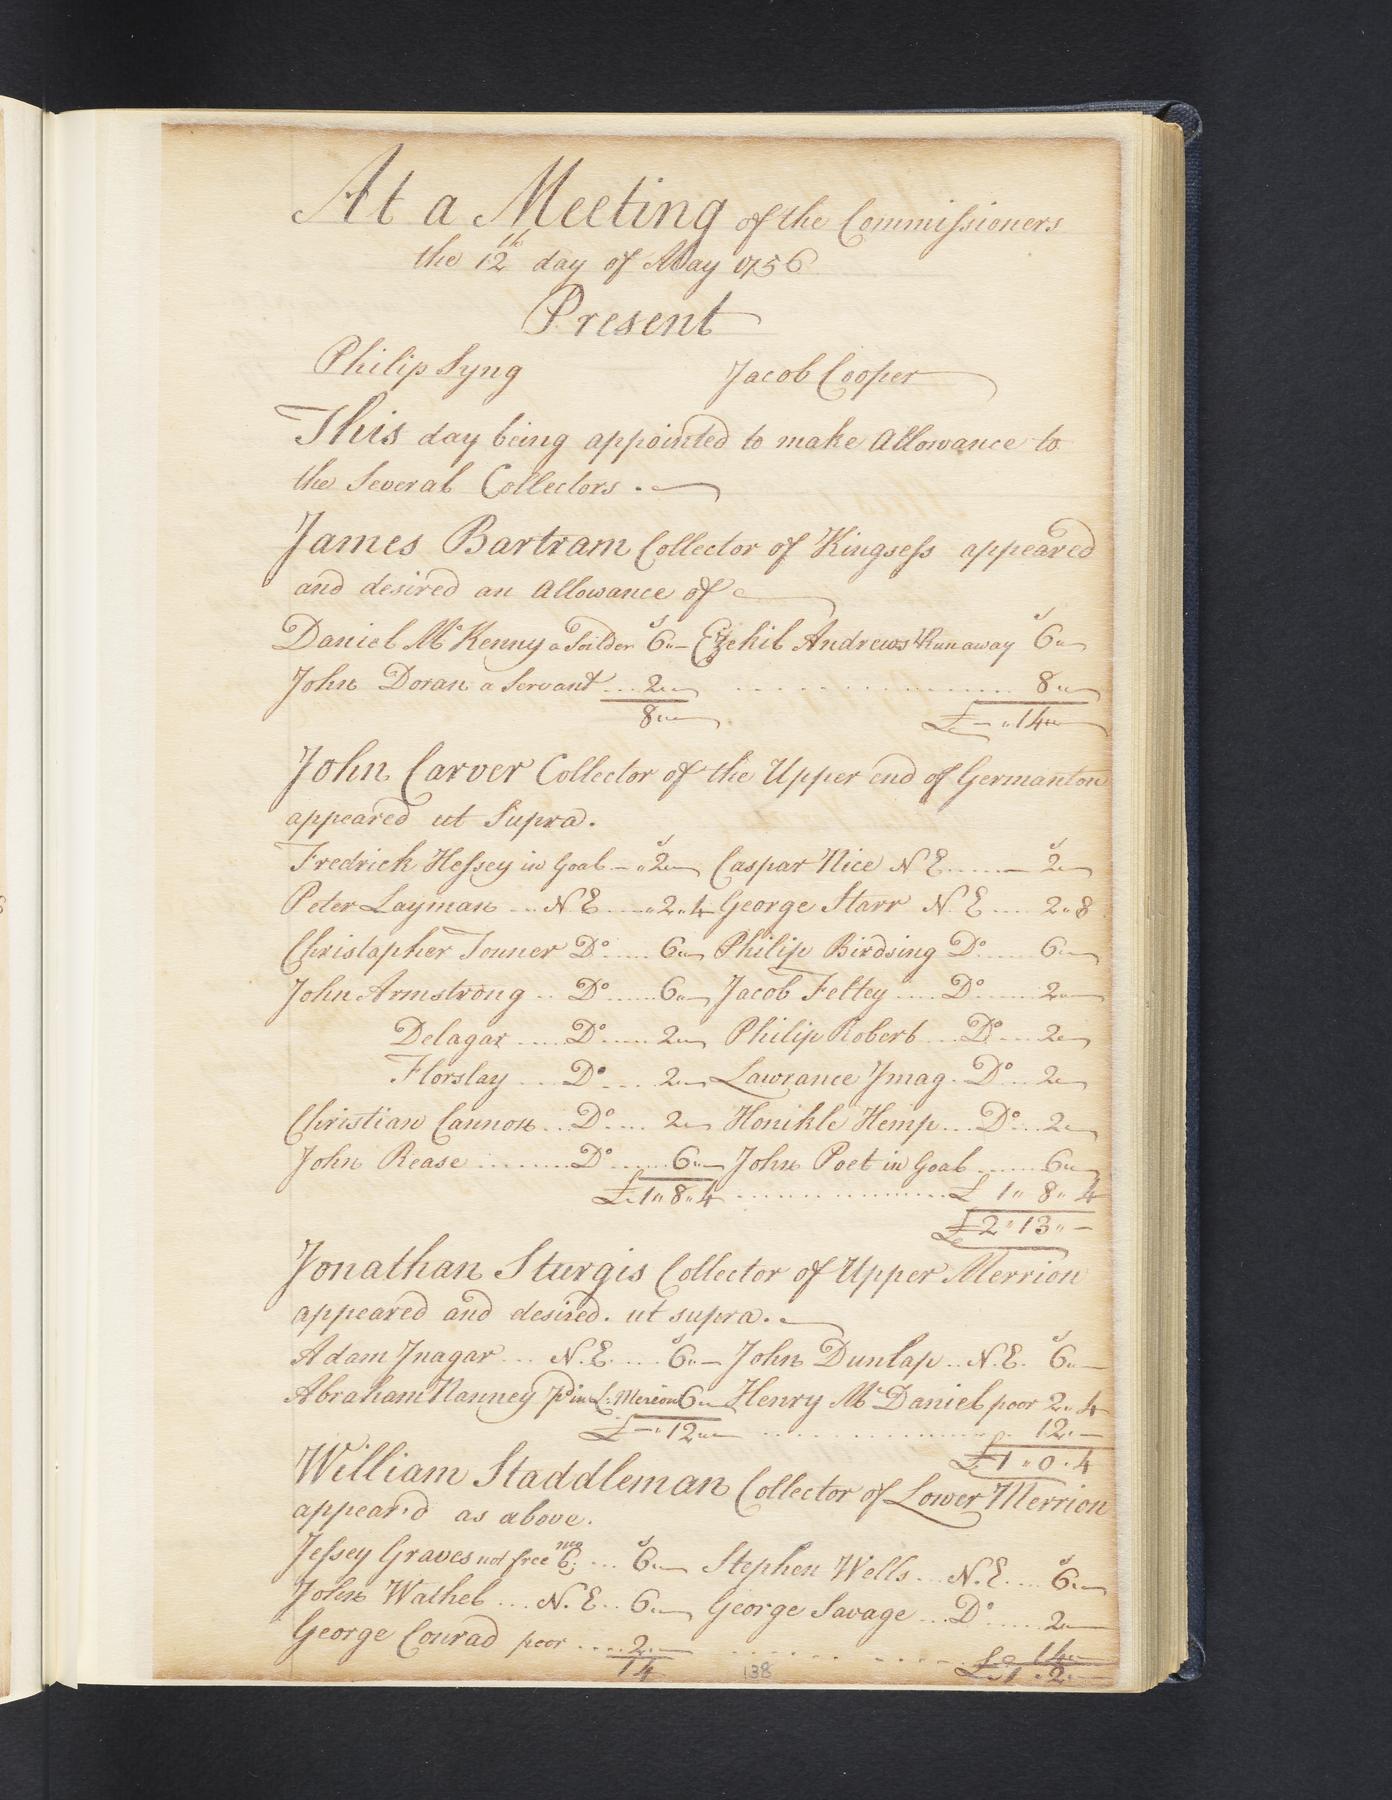 At a Meeting of the Commissioners
the 12th day of May 1756
Present
Philip Syng Jacob Cooper
This day being appointed to make Allowance to
the Several Collectors.
James Bartram Collector of Kingsess appeared
and desired an Allowance of
Daniel McKenny a Soilder 6s"— Ezehil Andrews Runaway 6s"
John Doran a Servant ... 2" .................. 8"
8" £ — " 14"
John Carver Collector of the Upper end of Germanton
appeared ut Supra.
Fredrick Hessey in Goal — " 2s" Caspar Nice N E ...... 2s"
Peter Layman ... N E ...."2"4 George Starr N E .... 2"8
Christapher Tonner Do ..... 6" Philip Birdsing Do ..... 6"
John Armstrong .. Do ..... 6" Jacob Feltey .... Do ..... 2"
Delagar ..... Do ..... 2" Philip Robert ... Do ... 2"
Florslay ... Do .... 2" Lawrance Ymag . Do .. 2"
Christian Cannon .. Do .... 2" Honikle Hemp ... Do ... 2"
John Rease ......... Do ...... 6" John Poet in Goal ...... 6"
£ 1"8"4 ................ £ 1"8"4
£ 2"13"—
Jonathan Sturgis Collector of Upper Merrion
appeared and desired. ut supra.
Adam Ynagar ... N.E. .... 6s"— John Dunlap .. N.E. 6s"—
Abraham Nanney pd in L. Merion 6" Henry McDaniel poor 2"4
£ — " 12" ................ 12"—
£ 1"0.4
William Staddleman Collector of Lower Merrion
appear'd as above.
Jessey Graves not free 6 mo ... 6s" Stephen Wells ... N.E. ... 6s"
John Wathel ... N.E .. 6" George Savage ... Do ..... 2"
George Conrad poor .... 2" ........ 14"
14 138 £ 1.2.—